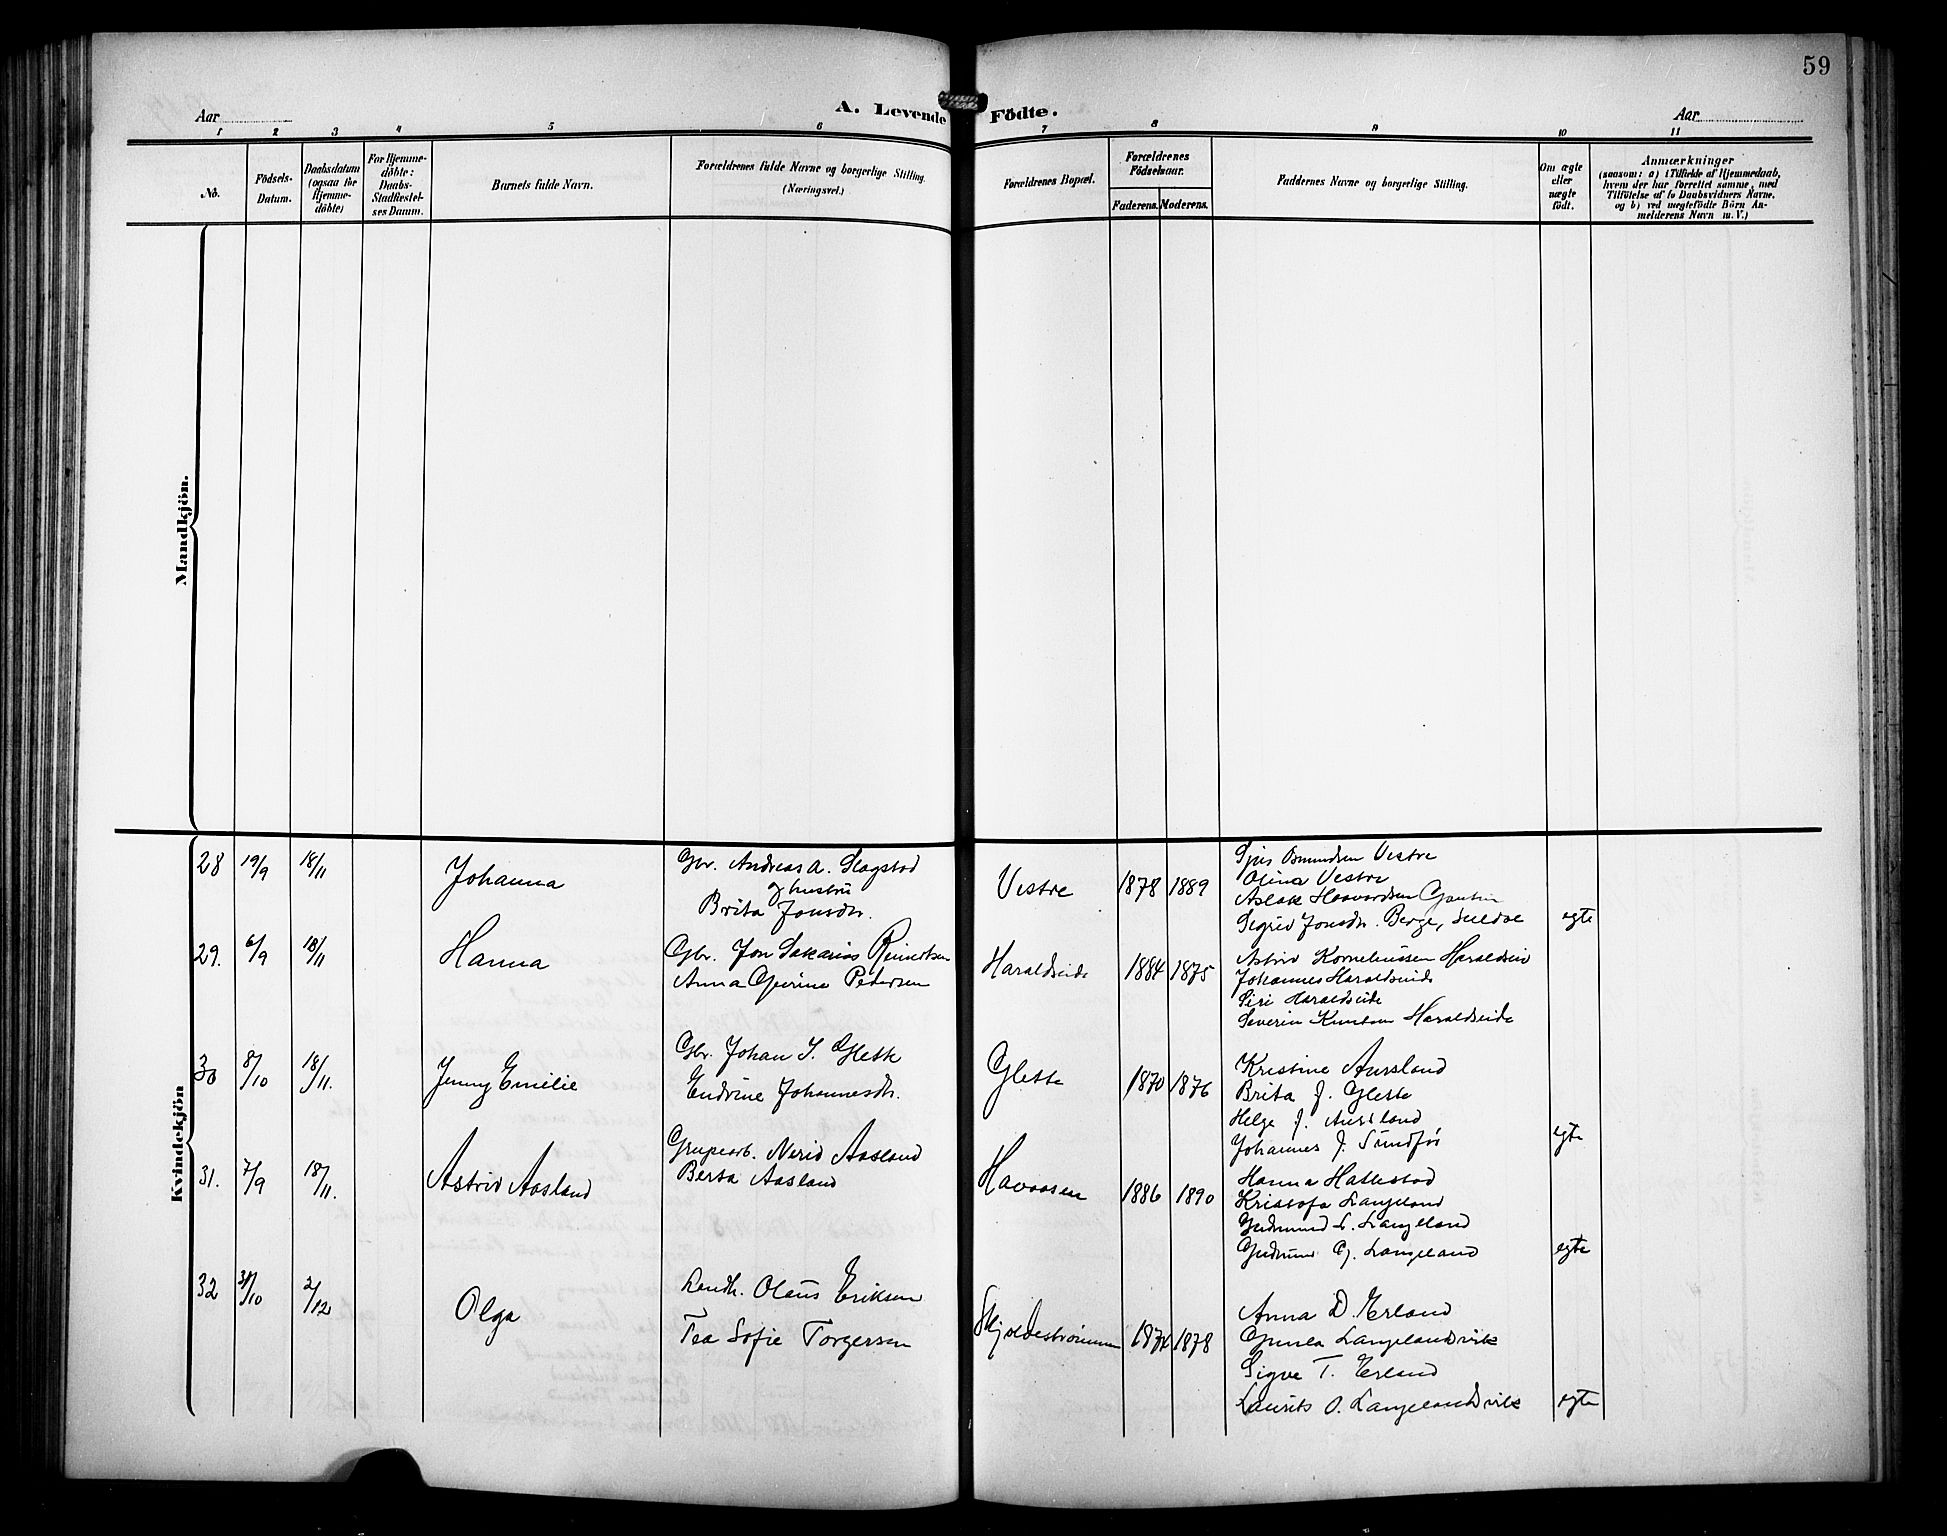 59
Aar
A. Levende Födte.
Aar
1 2 3 4 5 6 7 8 9 10 11
No.
Födsels-
Datum.
Daabsdatum
(ogsaa for
Hjemme-
döbte)
For Hjemme-
döbte:
Daabs-
Stadfæstel-
ses Datum.
Barnets fulde Navn.
Forældrenes fulde Navne og borgerlige Stilling.
(Næringsvei.)
Forældrenes Bopæl.
Forældrenes
Födselsaar.
Faderens. Moderens.
Faddernes Navne og borgerlige Stilling.
Om ægte
eller
uægte
födt.
Anmærkninger
(saasom: a) i Tilfælde af Hjemmedaab,
hvem der har forrettet samme, med
Tilföielse af to Daabsvidners Navne,
og b) ved uægtefödte Börn An-
melderens Navn m. V.)
Mandkjön.
Kvindekjön
28 19/9 18/11 Johanna
Gbr. Andreas A. Slagstad
og hustru
Brita Jonsdtr.
Vestre 1878 1889
Osmundsen Vestre
Olina Vestre
Aslak Haavardsen
Sigrid Jonsdtr. Berge, Suldal egte
29. 6/9 18/11 Hanna
Gbr. Jon Sakarias
Anna Petersen
Haraldseide 1884 1875
Astrid Korneliussen Haraldseid
Johannes Haraldseide
Siri Haraldseide
Severin Knutsen Haraldseide
30 8/10 18/11. Jenny Emilie
Gbr. Johan J. Glette
Endrine Johannesdtr.
Glette 1870 1876
Kristine Aursland
Brita J. Glette
Helge J. Aursland
Johannes J. Sundfør egte
31. 7/9 18/11. Astrid Aasland
Grubearb. Nerid Aasland
Berta Aasland
Havaasen 1886 1890
Hanna Hattestad
Kristofa Langeland
Gudmund L. Langeland
Gudrun G. Langeland egte
32 31/10 2/12 Olga
Landh. Olaus Eriksen
Tea Sofie Torgersen
Skjoldestrømmen 1874 1878
Anna D. Erland
Gunla Langelandsvik
Sigve T. Erland
Laurits O. Langelandsvik egte